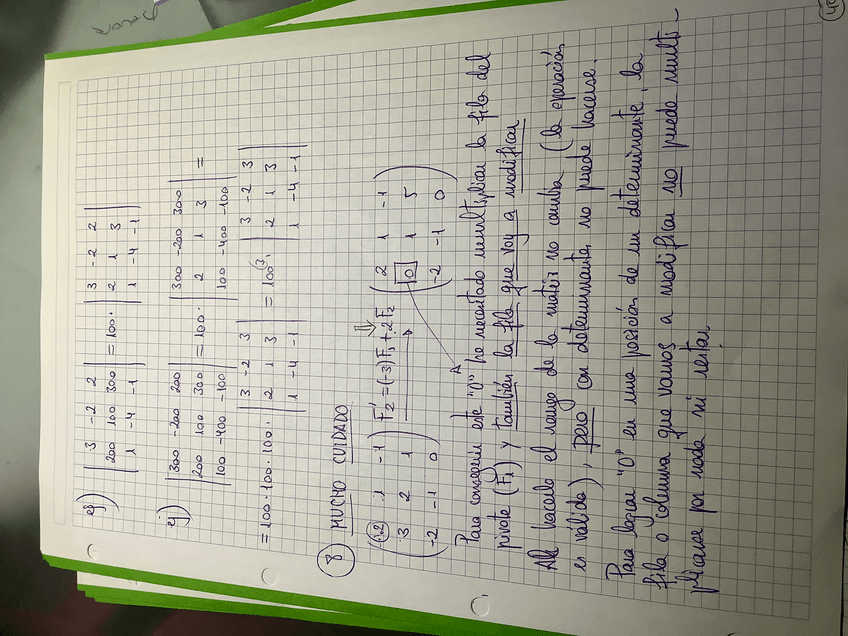 ej) | 3 -2 2 | | 3 -2 2 |
| 200 100 300 | = 100· | 2 1 3 |
| 1 -4 -1 | | 1 -4 -1 |
ej) | 300 -200 200 | | 300 -200 300 |
| 200 100 300 | = 100· | 2 1 3 | =
| 100 -400 -100 | | 100 -400 -100 |
| 3 -2 3 | | 3 -2 3 |
= 100·100·100· | 2 1 3 | = 100³· | 2 1 3 |
| 1 -4 -1 | | 1 -4 -1 |
8 MUCHO CUIDADO
2 1 -1 F₂' = (-3)F₁ + 2F₂ 2 1 -1
3 2 1 0 1 5
-2 -1 0 -2 -1 0
Para conseguir este "0" he necesitado multiplicar la fila del
pivote (F₁) y también la fila que voy a modificar
Al hacerlo el rango de la matriz no cambia (la operación
es válida), pero con determinantes no puede hacerse.
Para lograr "0" en una posición de un determinante, la
fila o columna que vamos a modificar no puede multi-
plicarse por nada ni restar